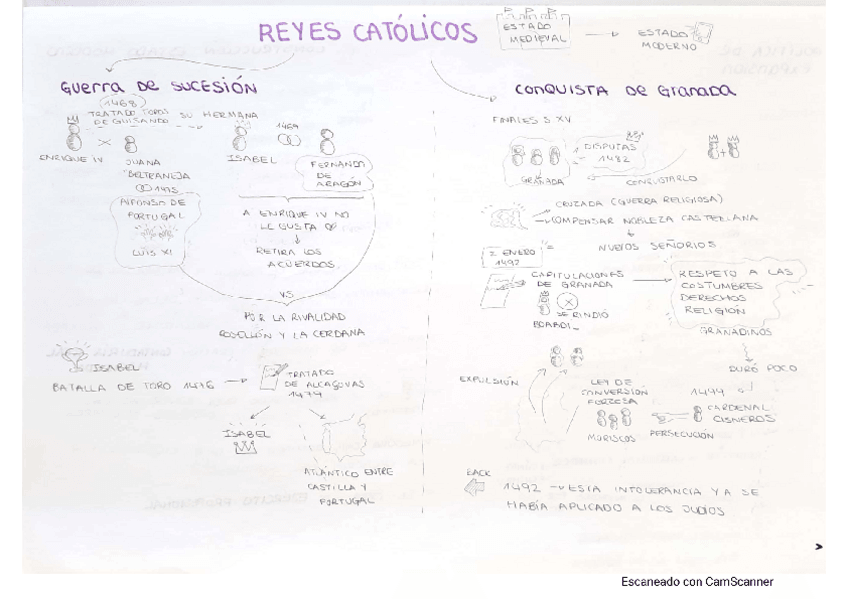 REYES CATÓLICOS
ESTADO
MEDIEVAL
ESTADO
MODERNO
GUERRA DE SUCESIÓN
1468
TRATADO TOROS
DE GUISANDO
SU HERMANA
1469
ENRIQUE IV
JUANA
"BELTRANEJA
1475
ISABEL
FERNANDO
DE
ARAGÓN
ALFONSO DE
PORTUGAL
LUIS XI
A ENRIQUE IV NO
LE GUSTA
RETIRA LOS
ACUERDOS.
VS
POR LA RIVALIDAD
ROSELLÓN Y LA CERDAÑA
ISABEL
BATALLA DE TORO 1476
TRATADO
DE ALCAÇOVAS
1479
ISABEL
ATLÁNTICO ENTRE
CASTILLA Y
PORTUGAL
CONQUISTA DE GRANADA
FINALES S XV
DISPUTAS
1482
GRANADA
CONQUISTARLO
CRUZADA (GUERRA RELIGIOSA)
COMPENSAR NOBLEZA CASTELLANA
NUEVOS SEÑORIOS
2 ENERO
1492
CAPITULACIONES
DE GRANADA
SE RINDIÓ
BOABDIL
RESPETO A LAS
COSTUMBRES
DERECHOS
RELIGIÓN
GRANADINOS
DURÓ POCO
EXPULSIÓN
LEY DE
CONVERSIÓN
FORZOSA
MORISCOS
PERSECUCIÓN
1499
CARDENAL
CISNEROS
BACK
1492 → ESTA INTOLERANCIA YA SE
HABÍA APLICADO A LOS JUDÍOS
Escaneado con CamScanner